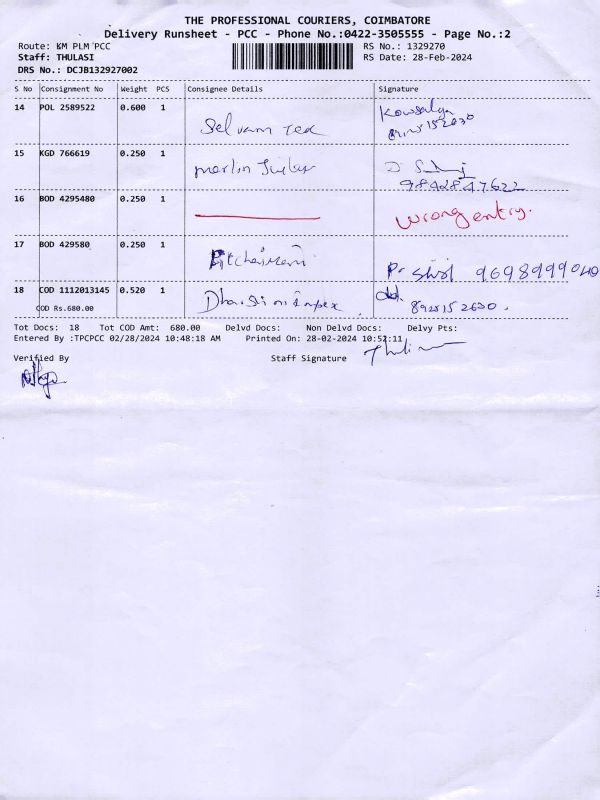 THE PROFESSIONAL COURIERS, COIMBATORE
Delivery Runsheet - PCC - Phone No.:0422-3505555 - Page No.:2
Route: KM PLM PCC RS No.: 1329270
Staff: THULASI RS Date: 28-Feb-2024
DRS No.: DCJB132927002
S No Consignment No Weight PCS Consignee Details Signature
14 POL 2589522 0.600 1 Selvam Tex Kowsalya
15 KGD 766619 0.250 1 merlin
9842847622
16 BOD 4295480 0.250 1 wrong entry.
17 BOD 429580 0.250 1 Pitchaimani 9698999040
18 COD 1112013145 0.520 1
COD Rs.680.00
Tot Docs: 18 Tot COD Amt: 680.00 Delvd Docs: Non Delvd Docs: Delvy Pts:
Entered By :TPCPCC 02/28/2024 10:48:18 AM Printed On: 28-02-2024 10:52:11
Verified By Staff Signature